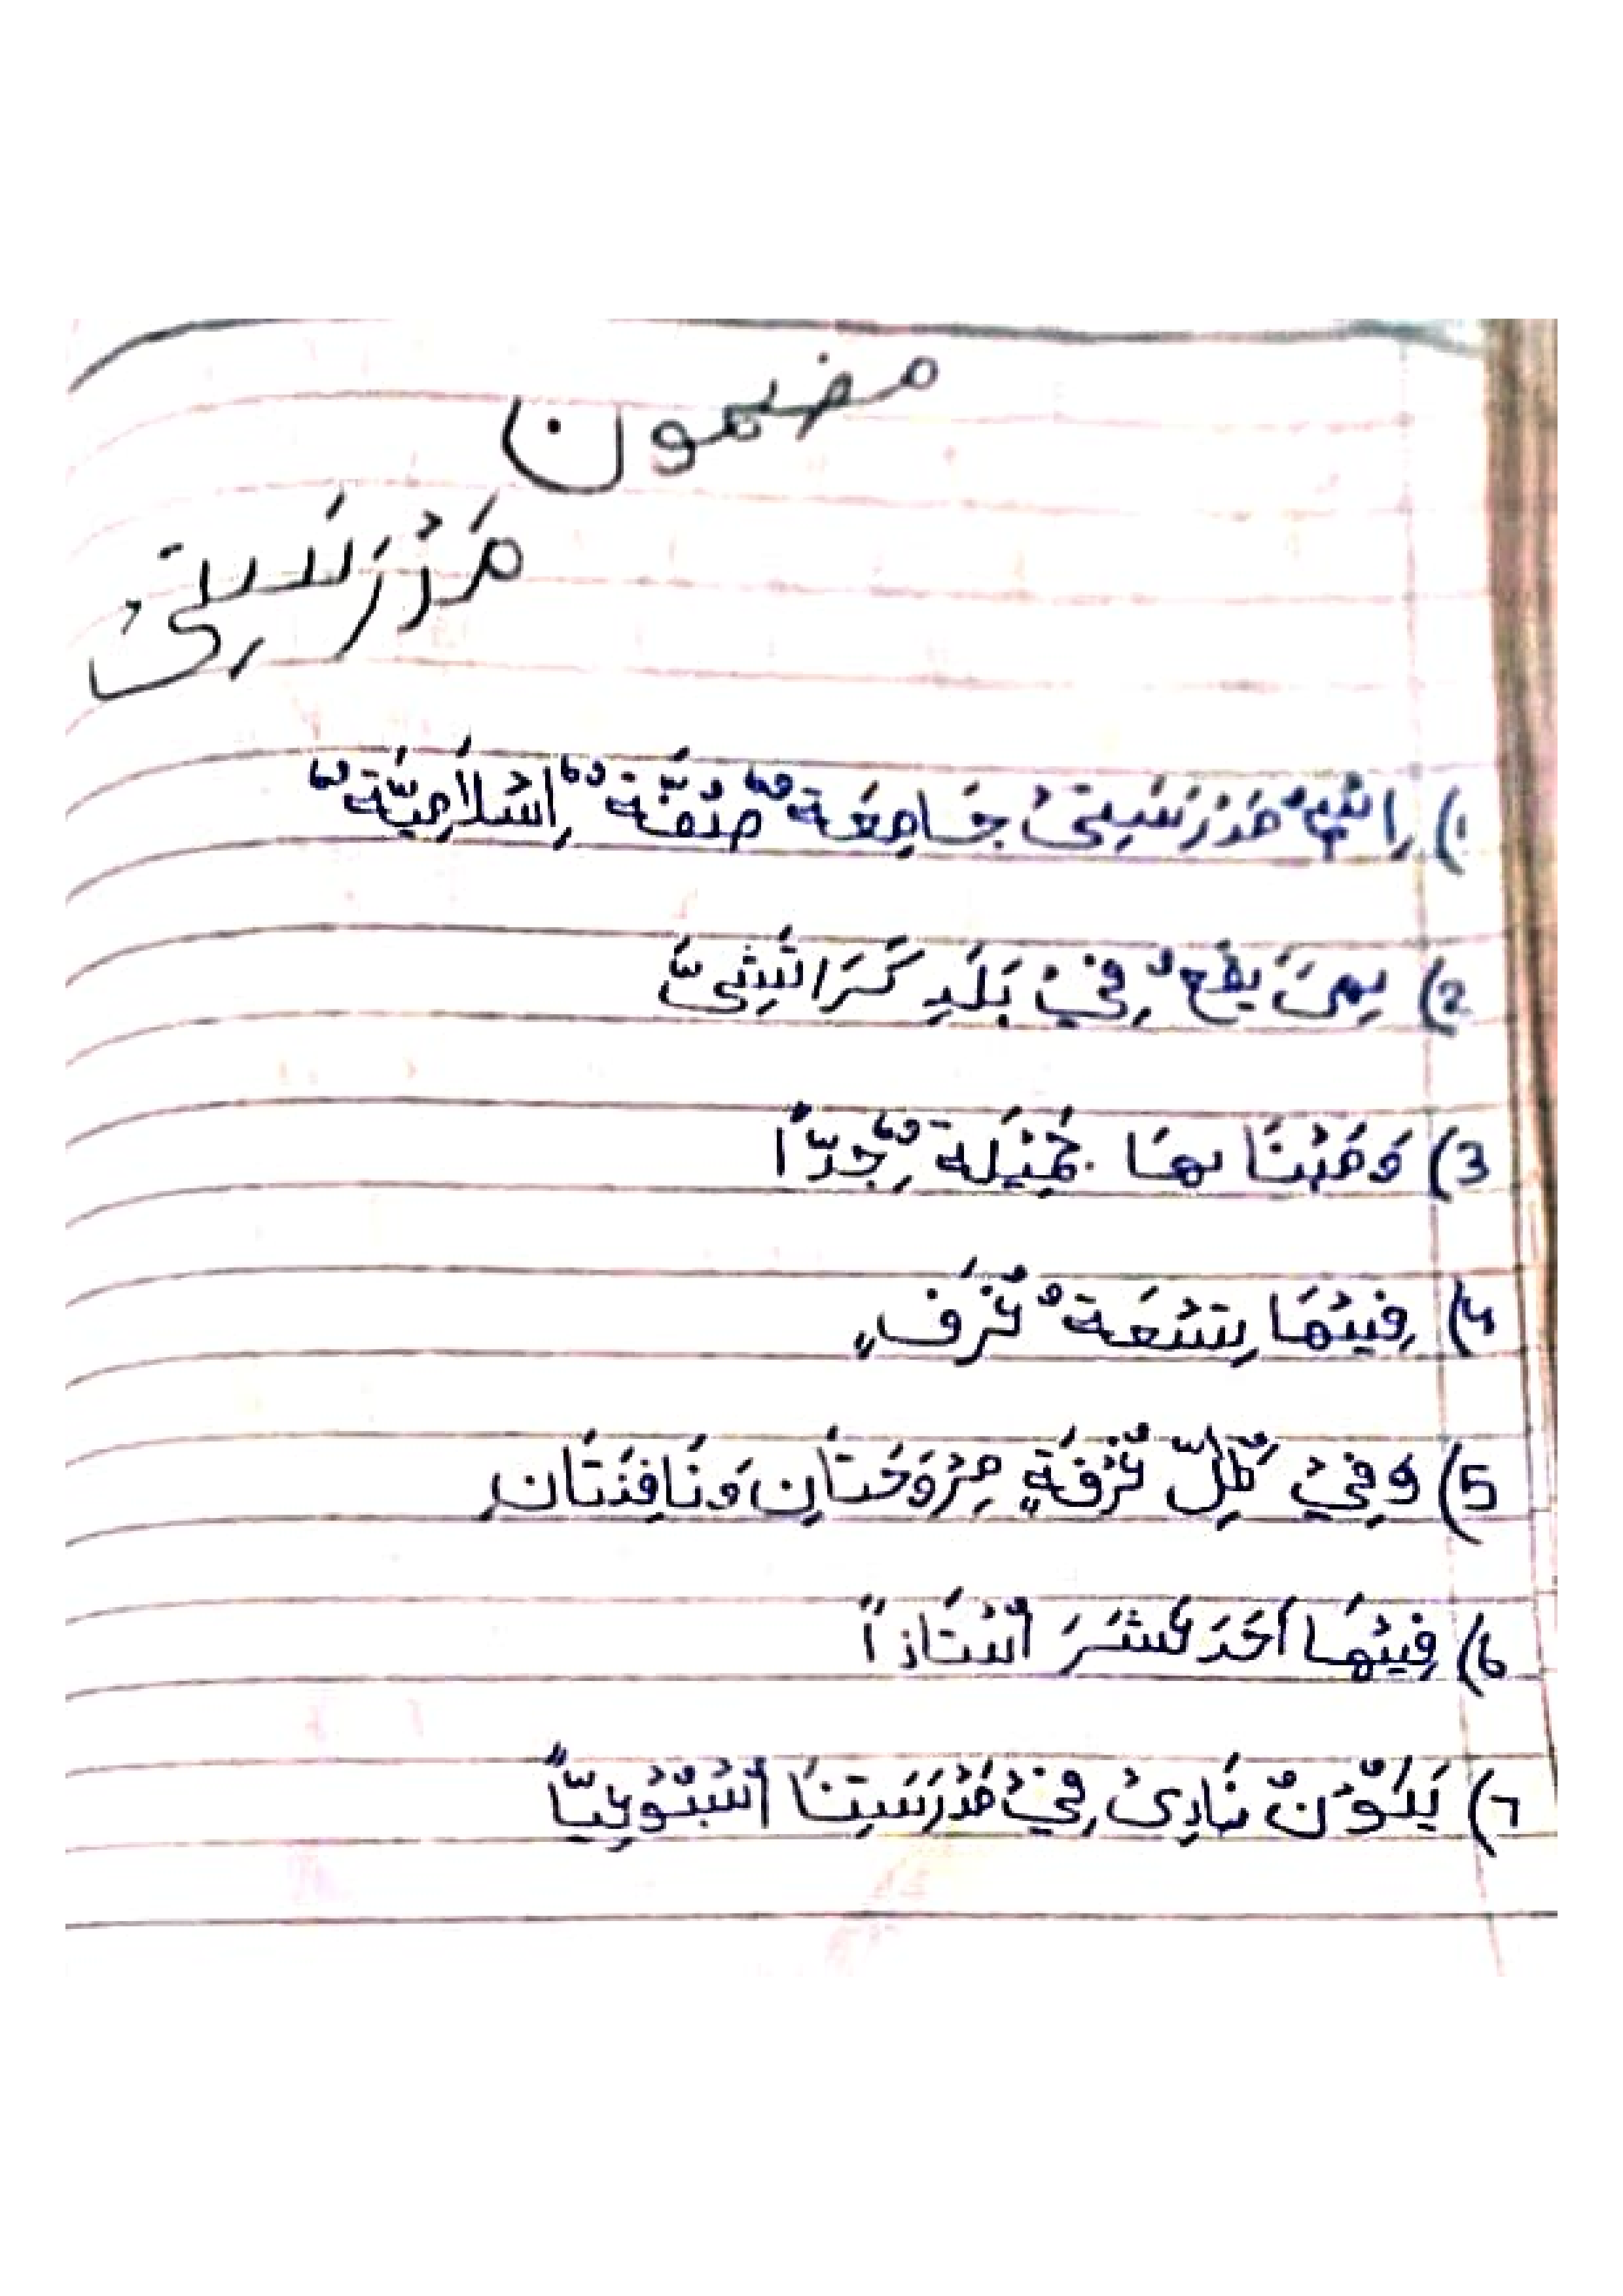 مضمون
مَدْرَسَتِىْ
1) اِسْمُ مَدْرَسَتِىْ جَامِعَةٌ صُفَّةٌ اِسْلَامِيَّةٌ
2) هِىَ يَقَعُ فِيْ بَلَدِ كَرَاتَشِىّ
3) وَمَبْنَاهَا جَمِيْلَةٌ جِدّاً
4) فِيْهَا تِسْعَةُ غُرَفٍ
5) وَفِيْ كُلِّ غُرْفَةٍ مِرْوَحَتَانِ وَنَافِذَتَانِ
6) فِيْهَا اَحَدَ عَشَرَ اُسْتَاذاً
7) يَكُوْنُ نَادِىْ فِيْ مَدْرَسَتِنَا اُسْبُوْعِيّاً